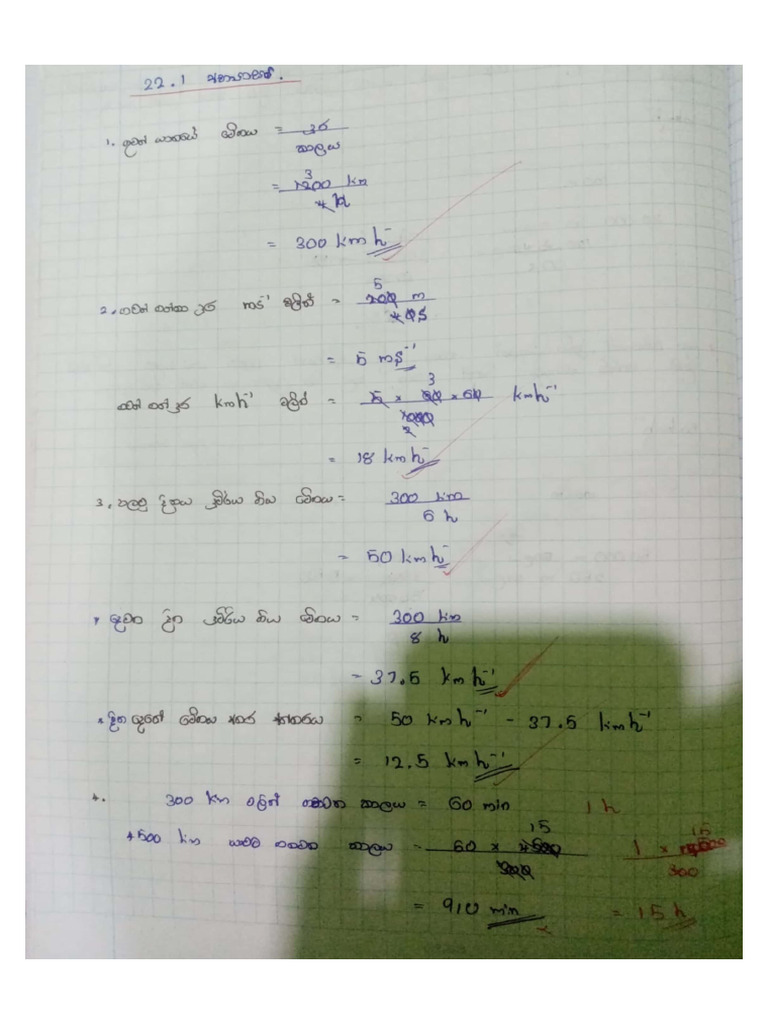 22.1 අභ්‍යාසය.
1. ගුවන් යානයේ වේගය = දුර
කාලය
= 3
1200 km
4 h
= 300 kmh⁻
2. ගමන් ගන්නා දුර ms⁻¹ වලින් = 5
200 m
40 s
= 5 ms⁻¹
ගමන් ගත් දුර kmh⁻¹ වලින් = 5 × 60 × 60 kmh⁻¹
1000
= 18 kmh⁻
3. පළමු දිනය ත්‍රිරිය ගිය වේගය = 300 km
6 h
= 50 kmh⁻
දෙවන දින ගිය වේගය = 300 km
8 h
= 37.5 kmh⁻¹
* දින දෙකේ වේගය අතර අන්තරය = 50 kmh⁻¹ - 37.5 kmh⁻¹
= 12.5 kmh⁻¹
4. 300 km වලින් ගතවන කාලය = 60 min 1 h
4500 km යාමට ගතවන කාලය = 60 × 4500 1 × 4500
300 300
= 910 min = 15 h